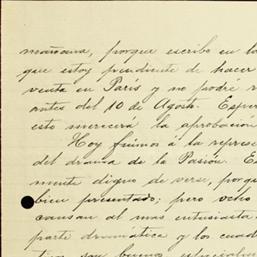 mañana, porque escribo en la
que estoy pendiente de hacer
venta en París y no podré
antes del 10 de Agosto. Esper
esto merecerá la aprobación
Hoy fuimos á la represe
del drama de la Pasión. E
mente digno de verse, porq
bien presentado; pero ocho
cansan al mas entusiasta.
parte dramática y los cuad